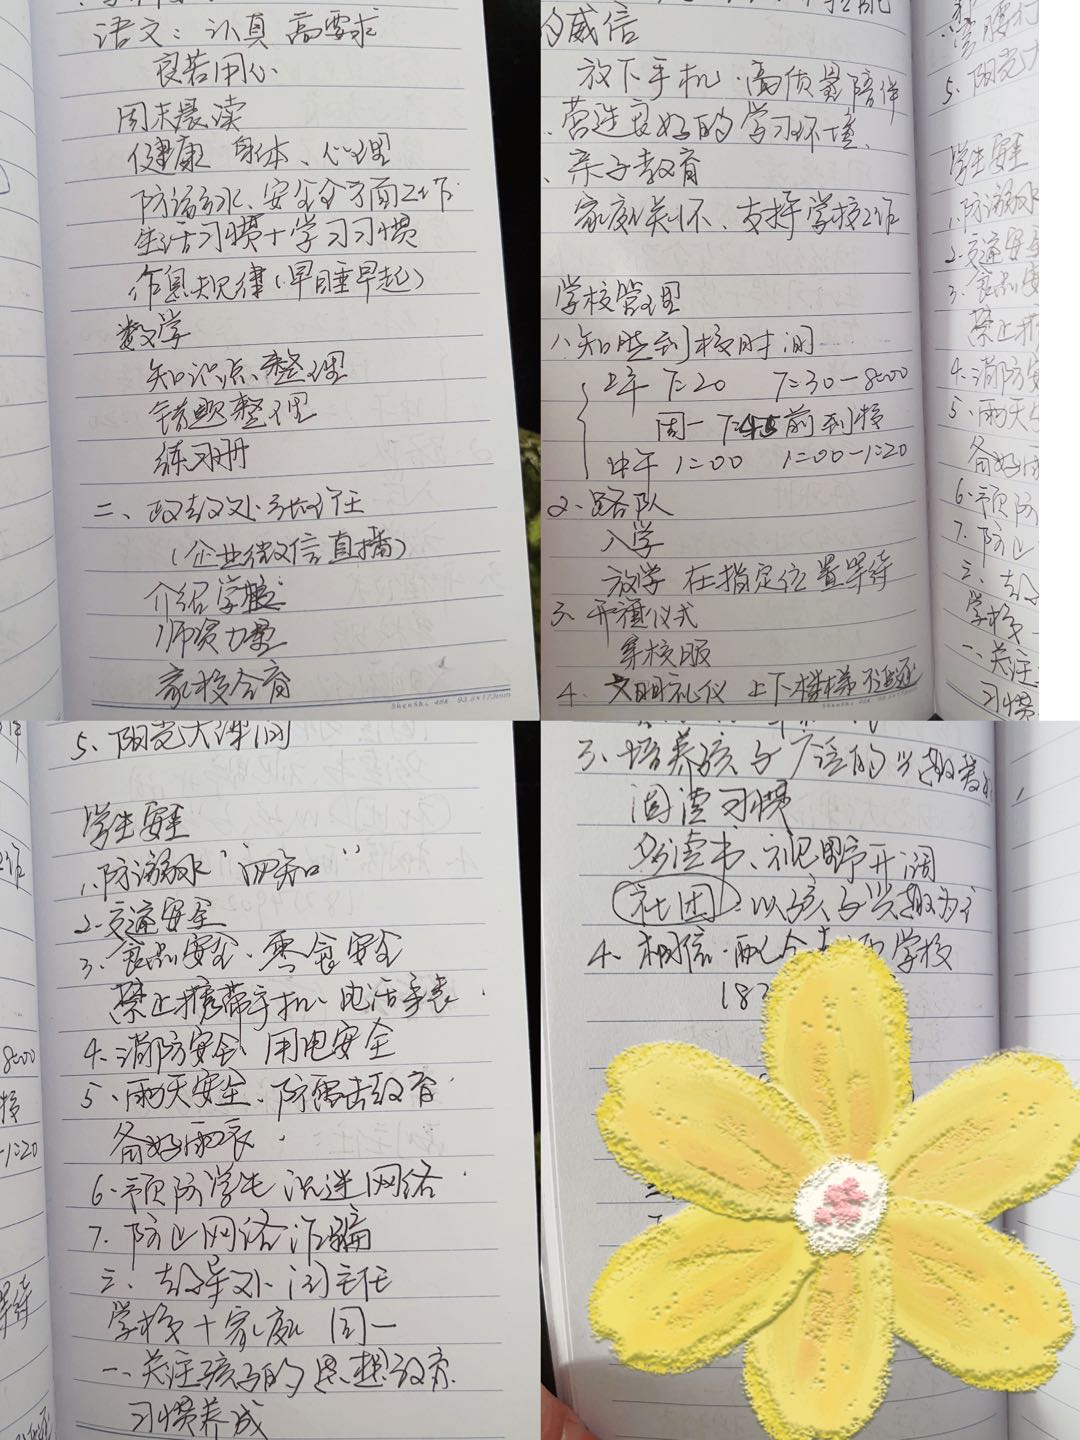 语文：认真 高要求
良苦用心
周末晨读
健康 身体、心理
防溺水、安全全方面工作
生活习惯+学习习惯
作息规律（早睡早起）
数学
知识点整理
错题整理
练习册
二、政教处张主任
（企业微信直播）
介绍学校
师资力量
家校合育
的威信
放下手机、高质量陪伴
营造良好的学习环境、
亲子教育
家庭关怀、支持学校工作
学校管理
1、知晓到校时间
上午 7:20 7:30-8:00
周一 7:45前到校
中午 1:00 1:00-1:20
2、路队
入学
放学 在指定位置等待
3、开播仪式
穿校服
4、文明礼仪 上下楼梯不追逐
5、阳光大
学生安全
1、防溺水
2、交通安全
3、食品安
禁止携
4、消防安
5、雨天
备好雨
6、预防
7、防止
三、教
学校
一、关注
习惯
5、阳光大课间
学生安全
1、防溺水“四知”
2、交通安全
3、食品安全、零食安全
禁止携带手机、电话手表、
4、消防安全、用电安全
5、雨天安全、防雷击教育
备好雨衣、
6、预防学生沉迷网络、
7、防止网络诈骗
三、教导处 闫主任
学校+家庭 同一
一、关注孩子的思想教育
习惯养成
3、培养孩子广泛的兴趣爱好
阅读习惯
多读书、视野开阔
社团：以孩子兴趣为主
4、相信、配合 学校
182